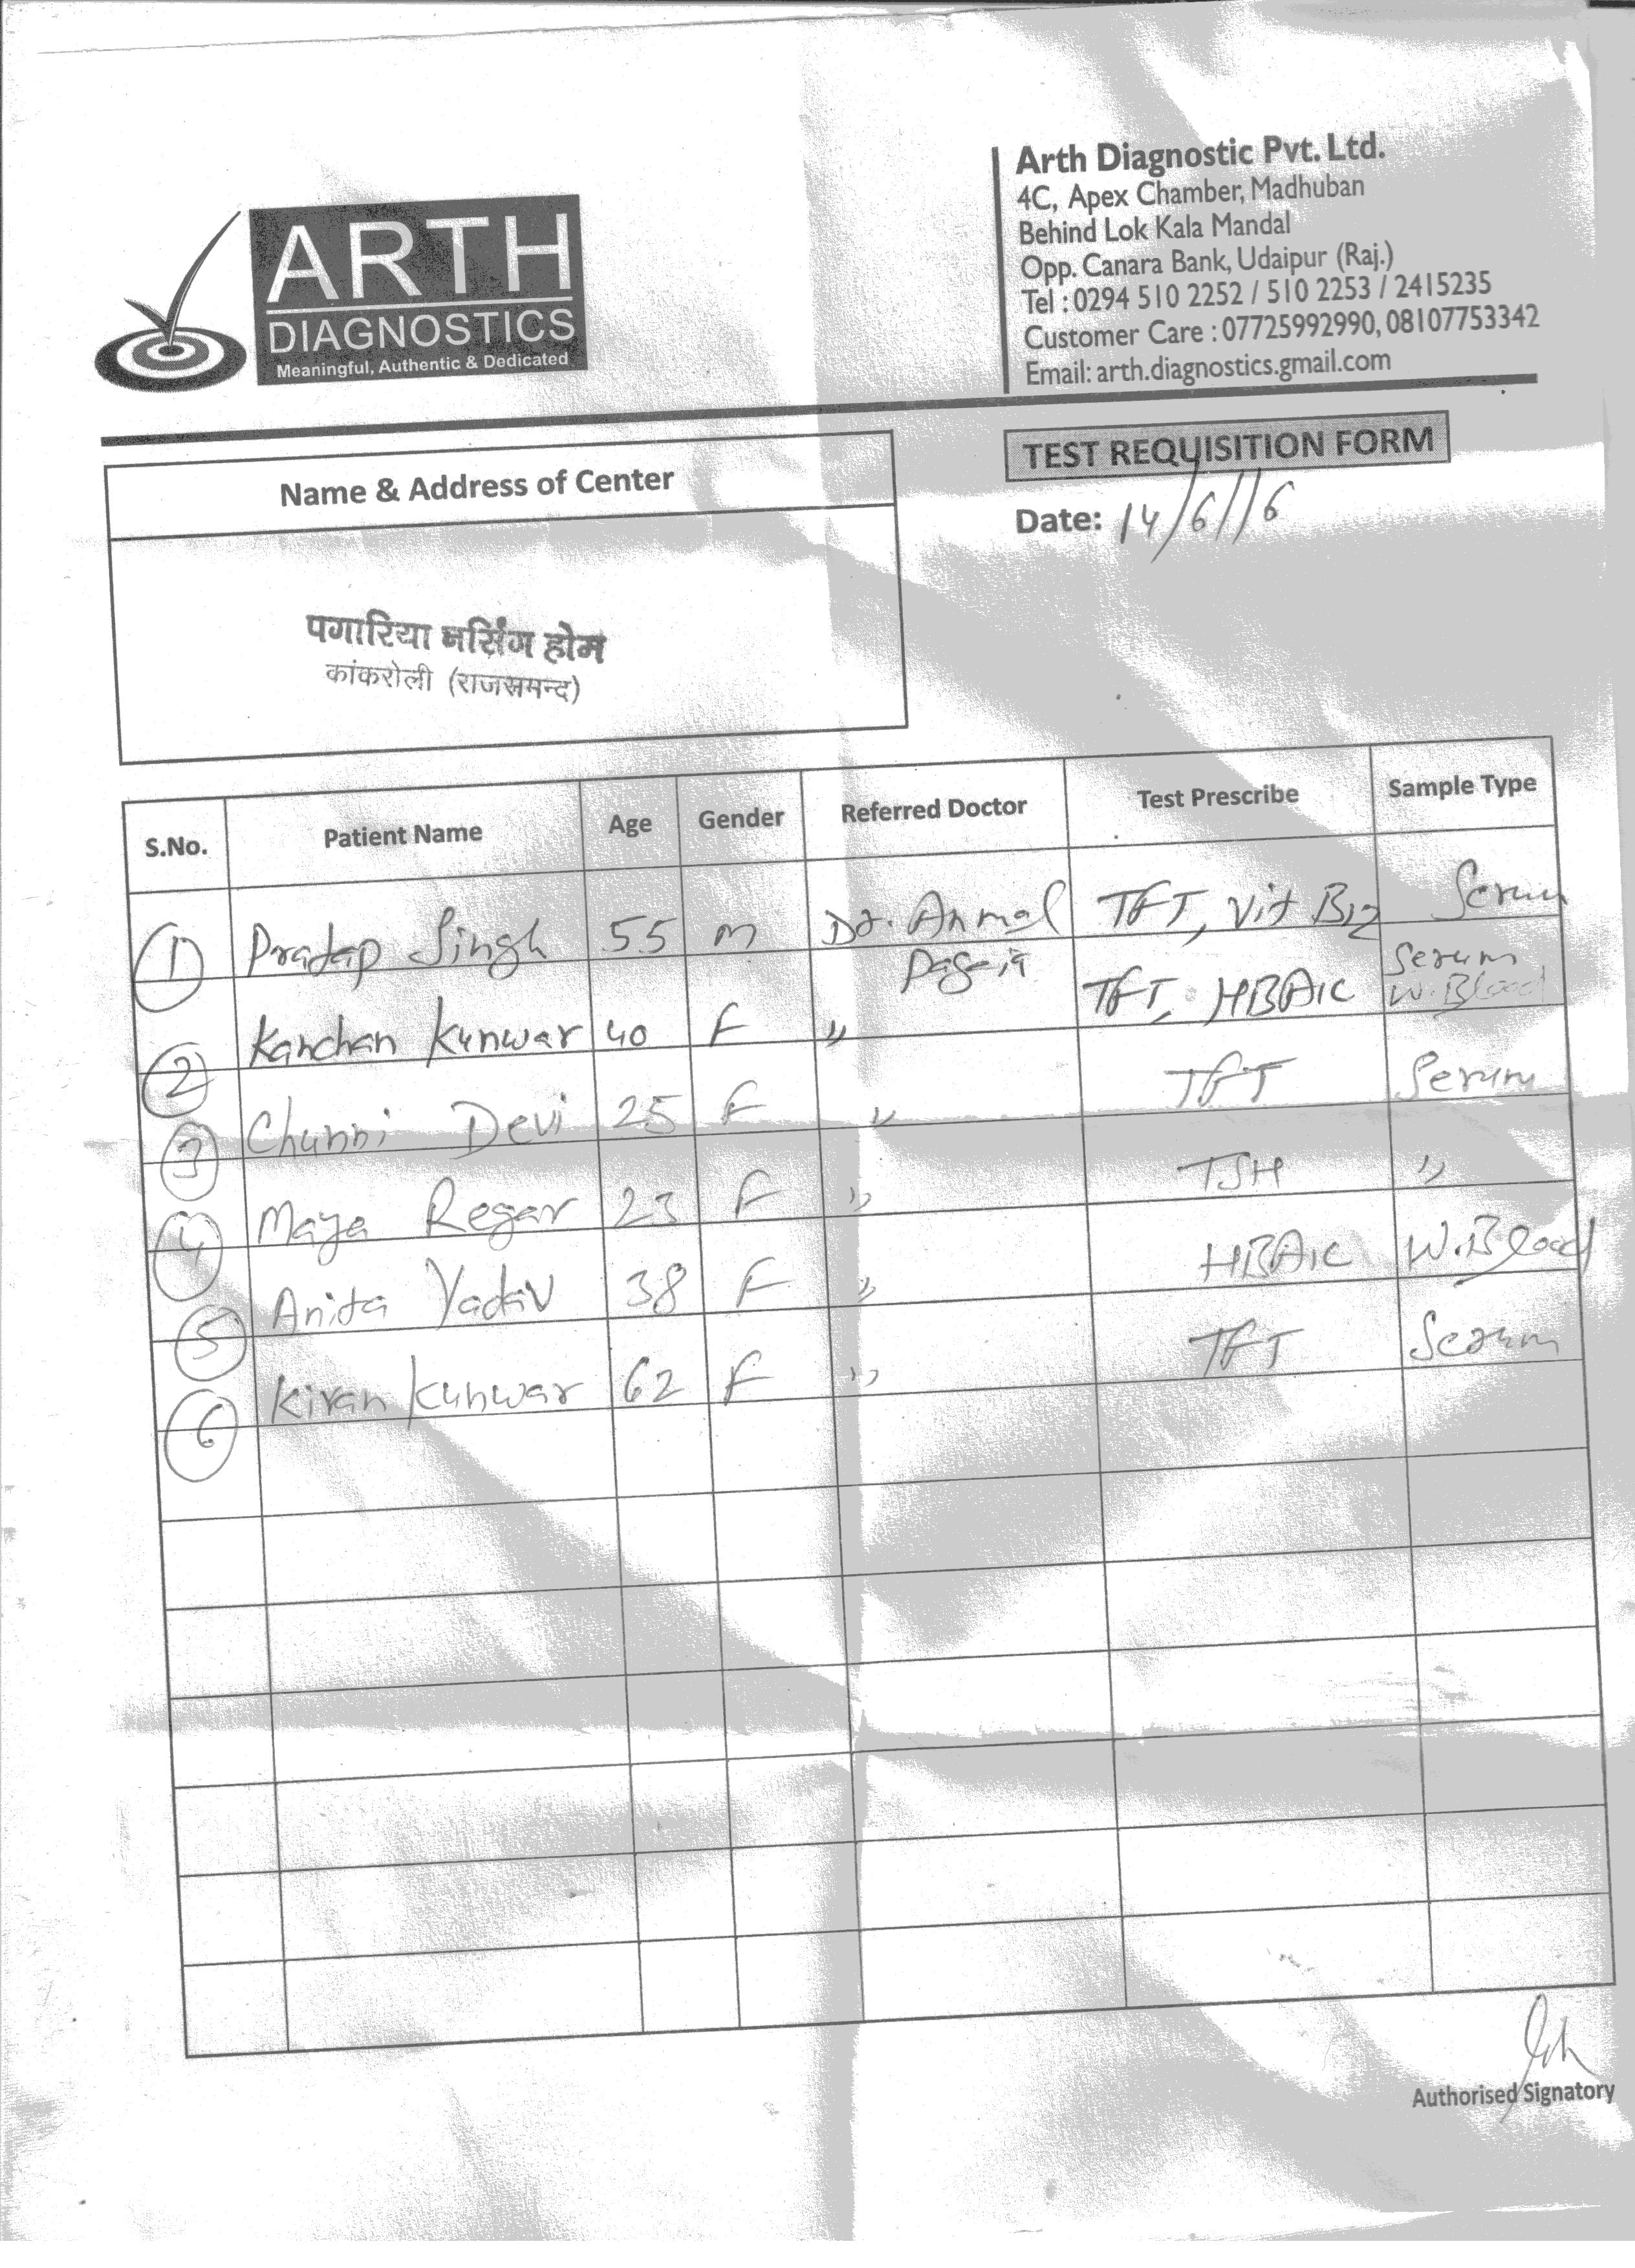 ARTH
DIAGNOSTICS
Meaningful, Authentic & Dedicated
Arth Diagnostic Pvt. Ltd.
4C, Apex Chamber, Madhuban
Behind Lok Kala Mandal
Opp. Canara Bank, Udaipur (Raj.)
Tel : 0294 510 2252 / 510 2253 / 2415235
Customer Care : 07725992990, 08107753342
Email: arth.diagnostics.gmail.com
TEST REQUISITION FORM
Date: 14/6/16
Name & Address of Center
पगारिया नर्सिंग होम
कांकरोली (राजसमन्द)
S.No. Patient Name Age Gender Referred Doctor Test Prescribe Sample Type
1 Pratap Singh 55 m Dr. Anmol TFT, Vit B12 Serum
2 Kanchan Kunwar 40 F " TFT, HBA1C Serum W.Blood
3 Chunni Devi 25 F " TFT Serum
4 Maya Regar 23 F " TSH "
5 Anita Yadav 38 F " HBA1C W.Blood
6 Kiran Kunwar 62 F " TFT Serum
Authorised Signatory